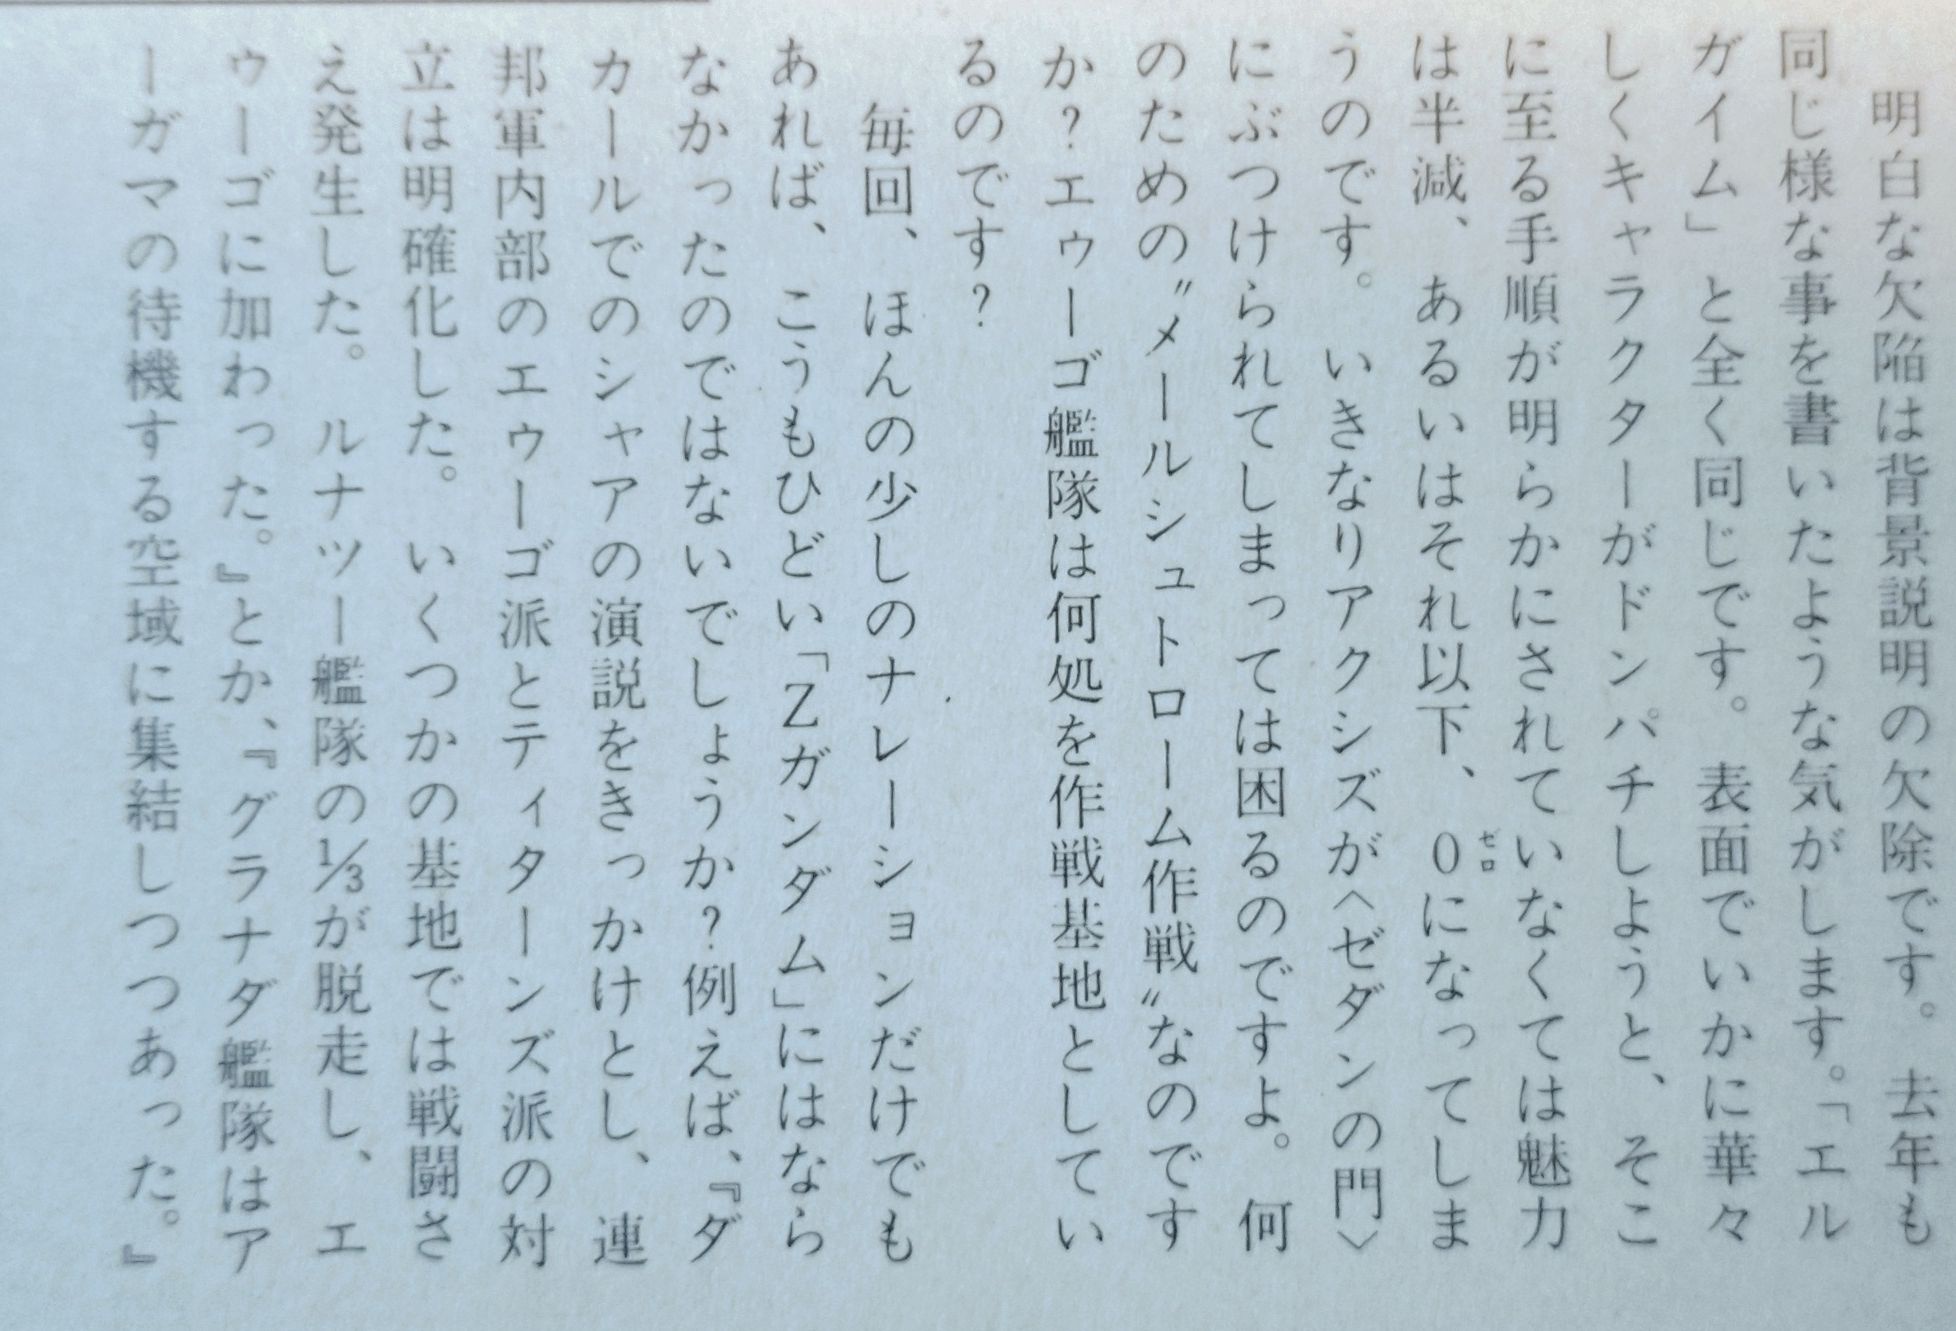 明白な欠陥は背景説明の欠除です。去年も
同じ様な事を書いたような気がします。「エル
ガイム」と全く同じです。表面でいかに華々
しくキャラクターがドンパチしようと、そこ
に至る手順が明らかにされていなくては魅力
は半減、あるいはそれ以下、0ゼロになってしま
うのです。いきなりアクシズが〈ゼダンの門〉
にぶつけられてしまっては困るのですよ。何
のための〝メールシュトローム作戦〟なのです
か？エゥーゴ艦隊は何処を作戦基地としてい
るのです？
毎回、ほんの少しのナレーションだけでも
あれば、こうもひどい「Zガンダム」にはなら
なかったのではないでしょうか？例えば、『ダ
カールでのシャアの演説をきっかけとし、連
邦軍内部のエゥーゴ派とティターンズ派の対
立は明確化した。いくつかの基地では戦闘さ
え発生した。ルナツー艦隊の⅓が脱走し、エ
ゥーゴに加わった。』とか、『グラナダ艦隊はア
ーガマの待機する空域に集結しつつあった。』